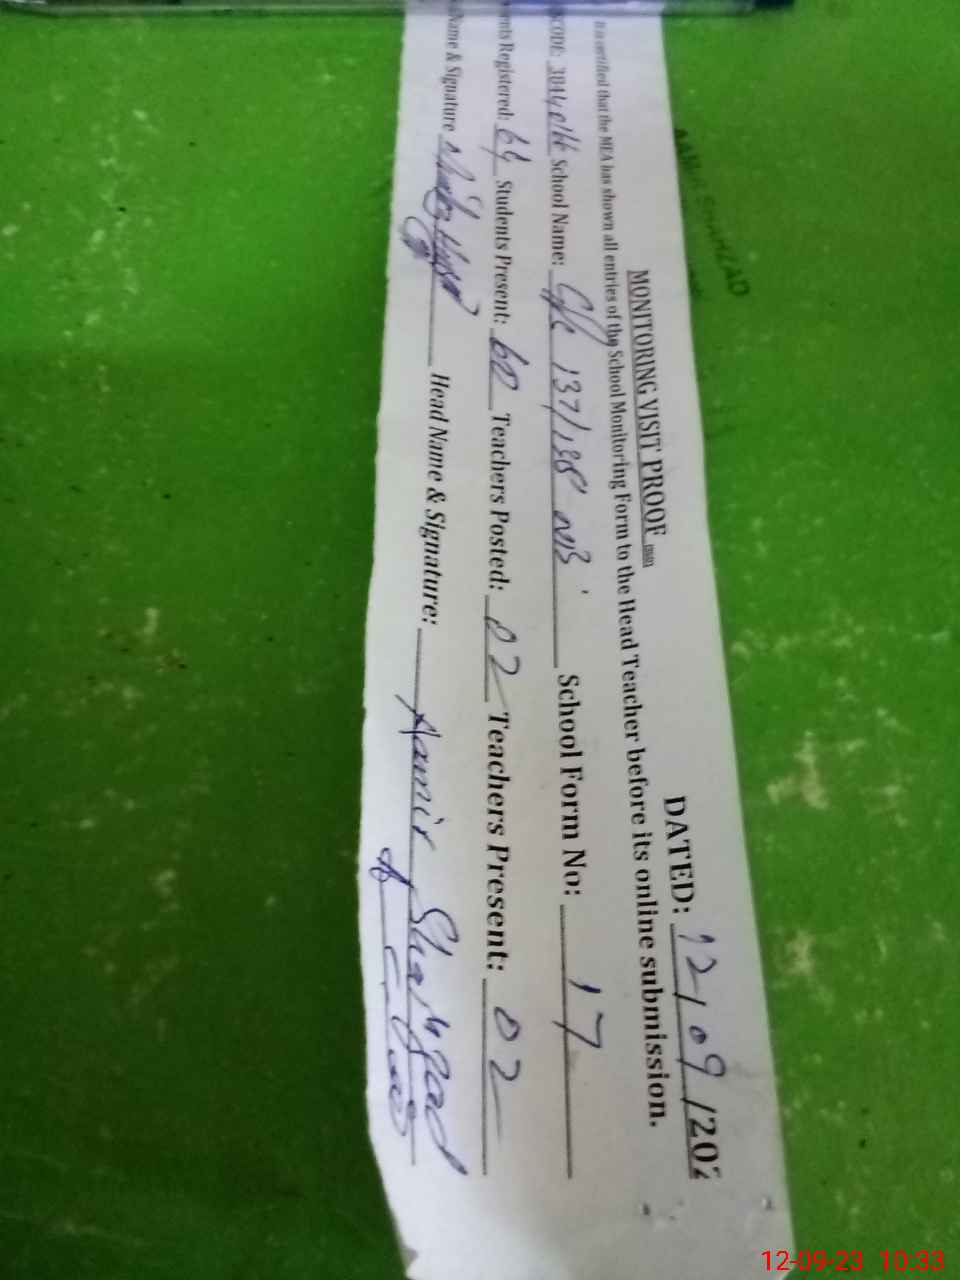 MONITORING VISIT PROOF
DATED: 12/09/202
It is certified that the MEA has shown all entries of the School Monitoring Form to the Head Teacher before its online submission.
SCODE: School Name: 137/138 NB School Form No: 17
ents Registered: 64 Students Present: 60 Teachers Posted: 02 Teachers Present: 02
Name & Signature Head Name & Signature: Aamir Shahzad
AAMIR SHAHZAD
12-09-23 10:33